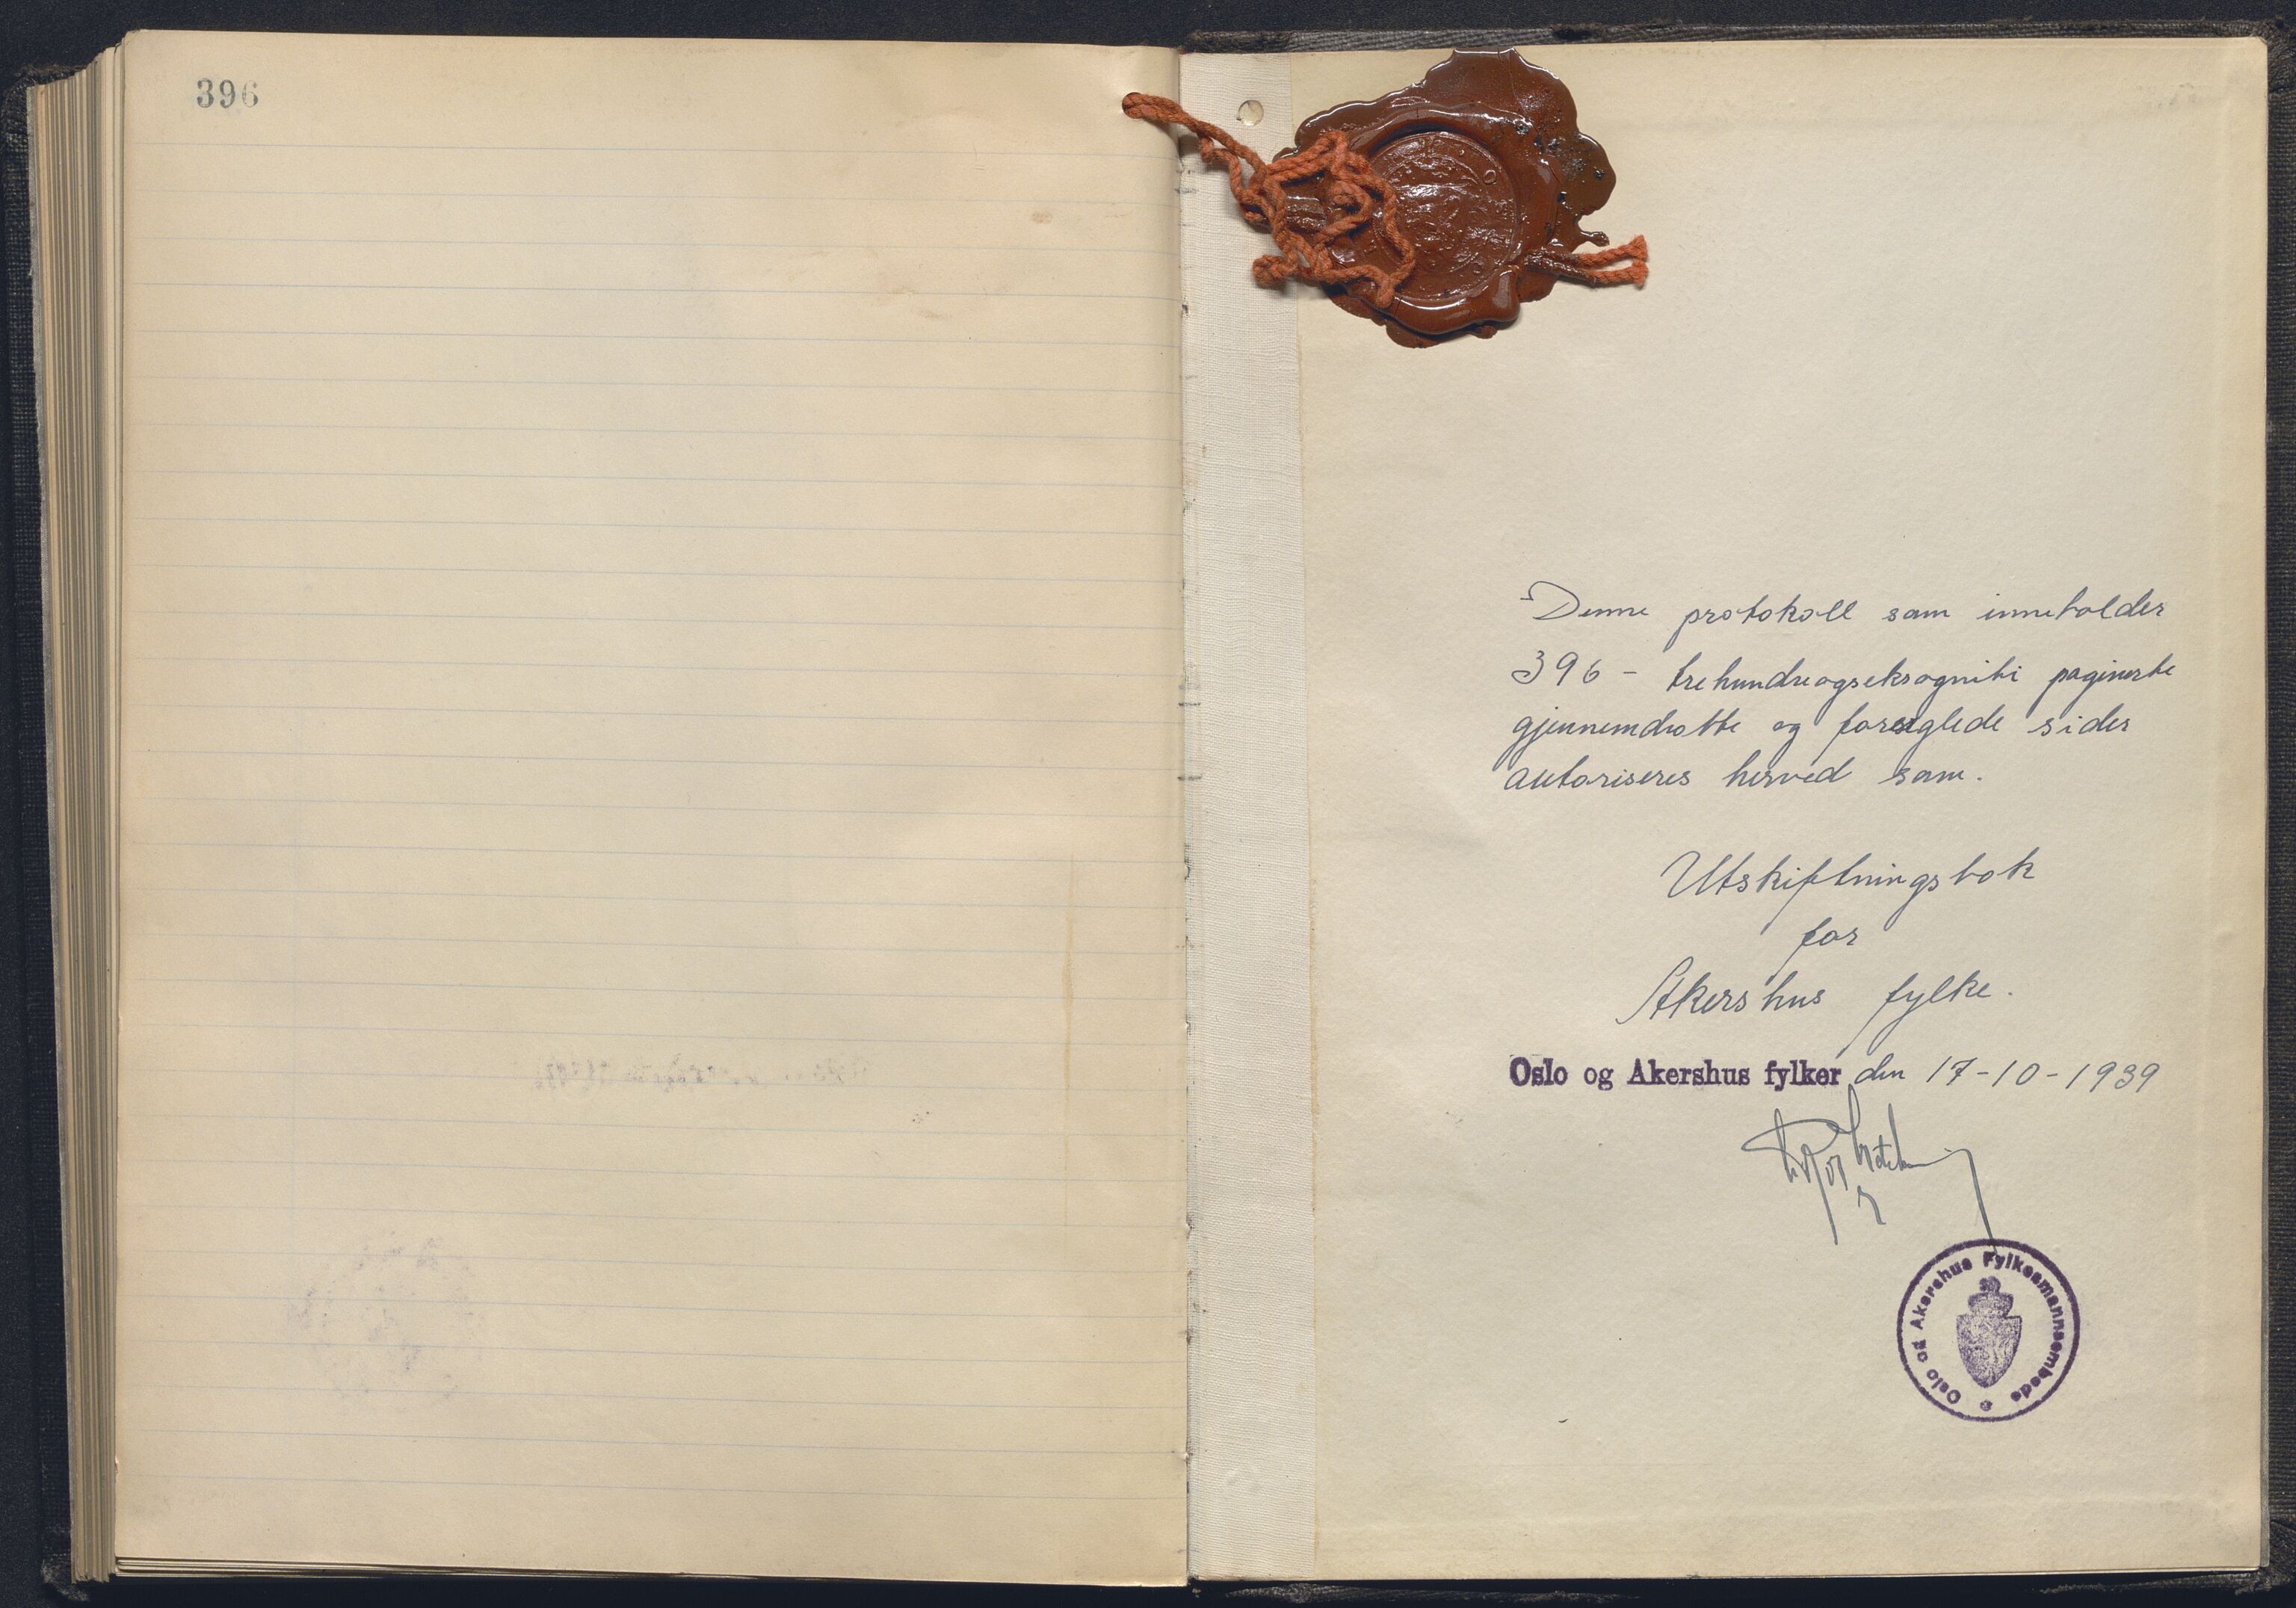 396
Denne protokoll som inneholder
396 - trehundreogseksognitti paginerte
gjennemdratte og forseglede sider
autoriseres herved som.
Utskiftningsbok
for
Akershus fylke.
Oslo og Akershus fylker den 17-10-1939
Oslo og Akershus Fylkesmannsembede